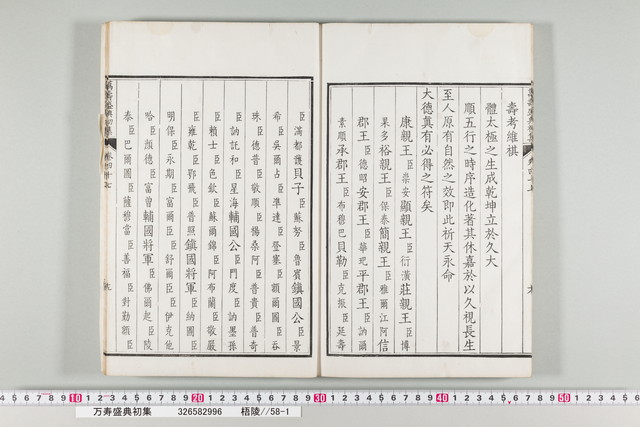 壽考維祺
體太極之生成乾坤立於久大
順五行之時序造化著其休嘉於以久視長生
至人原有自然之效卽此祈天永命
大德眞有必得之符矣
康親王臣崇安顯親王臣衍潢莊親王臣博
果多裕親王臣保泰簡親王臣雅爾江阿信
郡王臣德昭安郡王臣華玘平郡王臣訥爾
素順承郡王臣布穆巴貝勒臣克振臣延壽
臣滿都護貝子臣蘇努臣魯賓鎭國公臣景
熙臣吳爾占臣準達臣登塞臣額爾圖臣吞
珠臣德普臣敬順臣楊桑阿臣普貴臣普奇
臣訥託和臣星海輔國公臣門度臣訥墨孫
臣賴士臣色欽臣蘇爾錦臣阿布蘭臣敬嚴
臣雍乾臣鄂飛臣普照鎭國將軍臣納圖臣
明保臣永期臣富爾臣舒爾臣臣伊克他
哈臣顏德臣富曾輔國將軍臣佛爾起臣陵
泰臣巴爾圖臣薩穆當臣善福臣對勤額臣
10 20 30 40 50
万寿盛典初集 326582996 梧陵//58-1